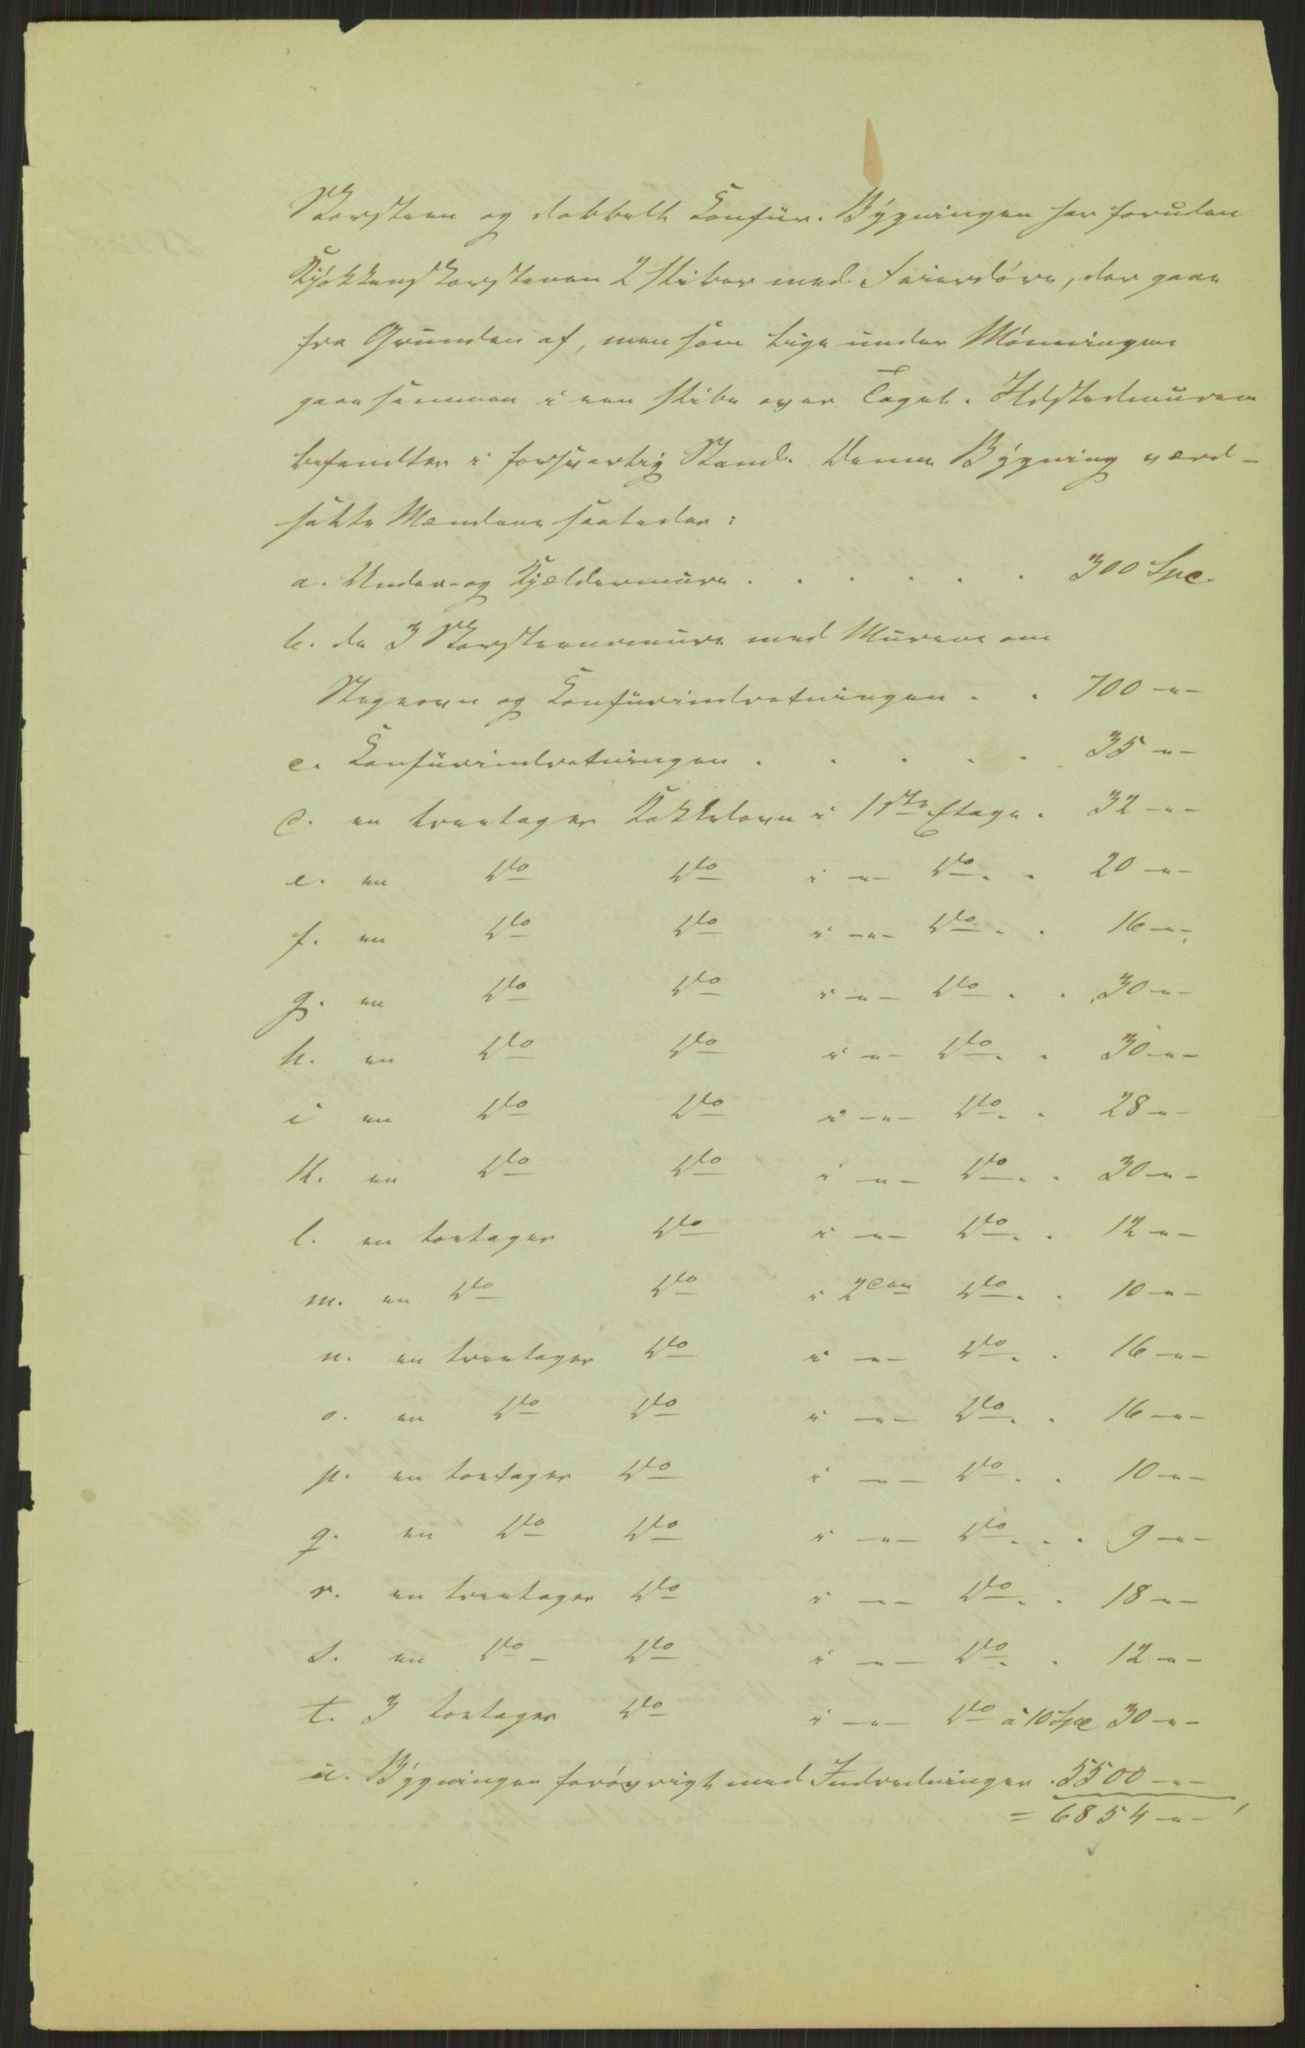 Skorsteen og dobbelt Comfür. Bÿgningen har foruden
Kjökkenskorstenen 2 Piber med Feierdöre, der gaae
fra Grunden af, men som lige under Mönningen
gaae sammen i een Pibe over Taget. Ildstedmurene
befandtes i forsvarlig Stand. Denne Bÿgning værd-
satte Mændene saaledes:
a. Under- og Kjældermure . . . . . . 300 Spe.
b. de 3 Skorsteensmure med Murene om
Stegeovn og Comfürindretningen . . 700 -"-
c. Comfürindretningen . . . . . 35 -"-
d. en treetages Kakkelovn i 1ste Etage . 32 -"-
e. en Do Do i -"- Do . . 20 -"-
f. en Do Do i -"- Do . . 16 -"-
g. en Do Do i -"- Do . . 30 -"-
h. en Do Do i -"- Do . . 30 -"-
i en Do Do i -"- Do . . 28 -"-
k. en Do Do i -"- Do . . 30 -"-
l. en toetages Do i -"- Do . . 12 -"-
m. en Do Do i 2den Do . . 10 -"-
n. en treetages Do i -"- Do . . 16 -"-
o. en Do Do i -"- Do . . 16 -"-
p. en toetages Do i -"- Do . . 10 -"-
q. en Do Do i -"- Do . . . 9 -"-
r. en treetages Do i -"- Do . . 18 -"-
s. en Do - Do i -"- Do . . 12 -"-
t. 3 toetages Do i -"- Do à 10 Spe 30 -"-
u. Bÿgningen forövrigt med Indredninger . 5500 -"-
= 6854 -"-